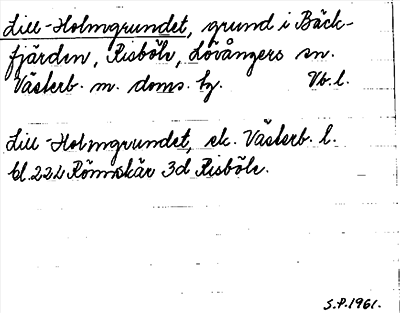 Lill-Holmgrundet, grund i Bäck-
fjärden, Risböle, Lövångers sn.
Västerb. m. doms. hg. Vb.l.
Lill-Holmgrundet, ek. Västerb. l.
bl. 22L Rönnskär 3d Risböle.
S.P.1961.